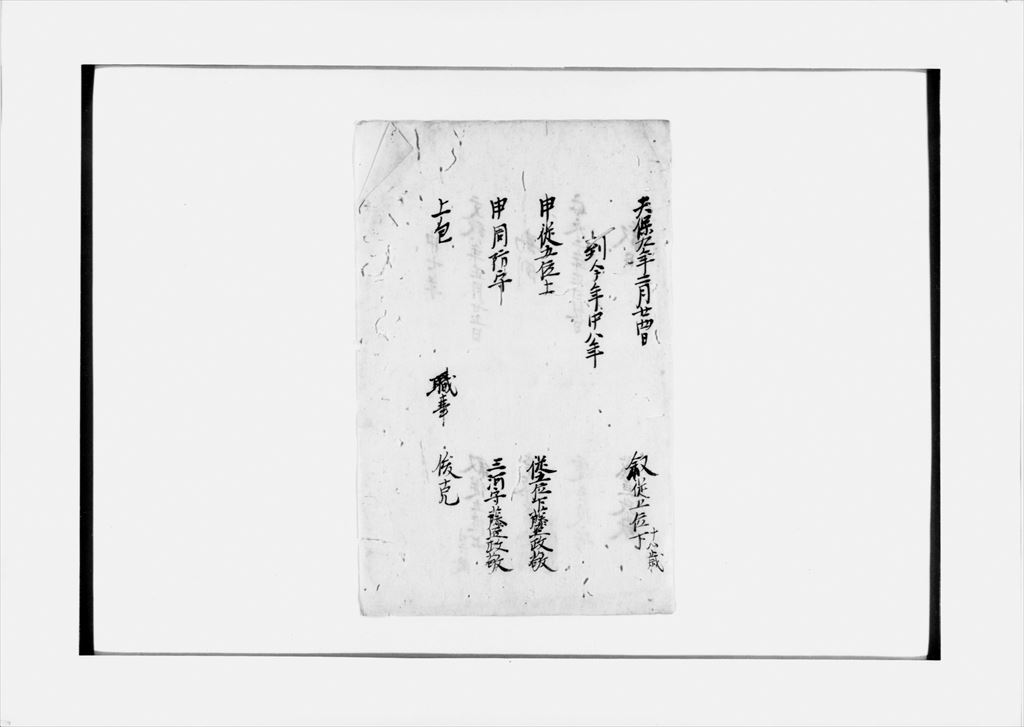 天保九年二月廿四日 叙従五位下十八歳
到今年中八年
申従五位上 従五位下藤原政敬
申周防守 三河守藤原政敬
上包 職事 俊克